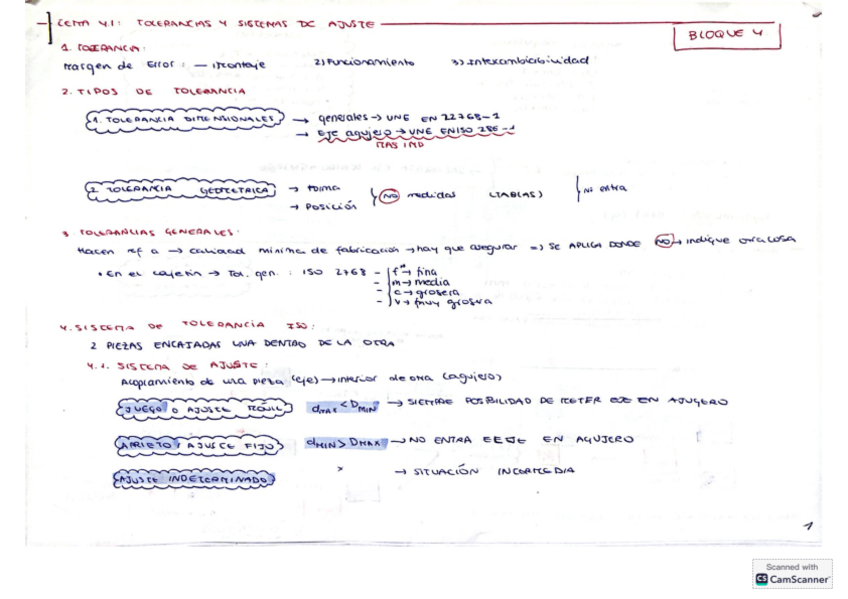 TEMA 4.1: TOLERANCIAS Y SISTEMAS DE AJUSTE
BLOQUE 4
1. TOLERANCIA:
Margen de Error: — Montaje 2) Funcionamiento 3) Intercambiabilidad
2. TIPOS DE TOLERANCIA
1. TOLERANCIA DIMENSIONALES → generales → UNE EN 22768-1
→ Eje agujero → UNE EN ISO 286-1
MAS IMP
2. TOLERANCIA GEOMETRICA → Forma
→ Posición
NO medidas (TABLAS) NO entra
3. TOLERANCIAS GENERALES:
Hacen ref a → calidad mínima de fabricación → hay que asegurar => SE APLICA DONDE NO → indique otra cosa
• En el cajetín → Tol. gen.: ISO 2768 - f → fina
- m → media
- c → grosera
- v → muy grosera
4. SISTEMA DE TOLERANCIA ISO:
2 PIEZAS ENCAJADAS UNA DENTRO DE LA OTRA
4.1. SISTEMA DE AJUSTE:
Acoplamiento de una pieza (eje) → interior de otra (agujero)
JUEGO O AJUSTE MÓVIL dMAX < DMIN → SIEMPRE POSIBILIDAD DE METER EJE EN AJUGERO
APRIETO / AJUSTE FIJO dMIN > DMAX → NO ENTRA EL EJE EN AGUJERO
AJUSTE INDETERMINADO → SITUACIÓN INTERMEDIA
1
Scanned with
CS CamScanner